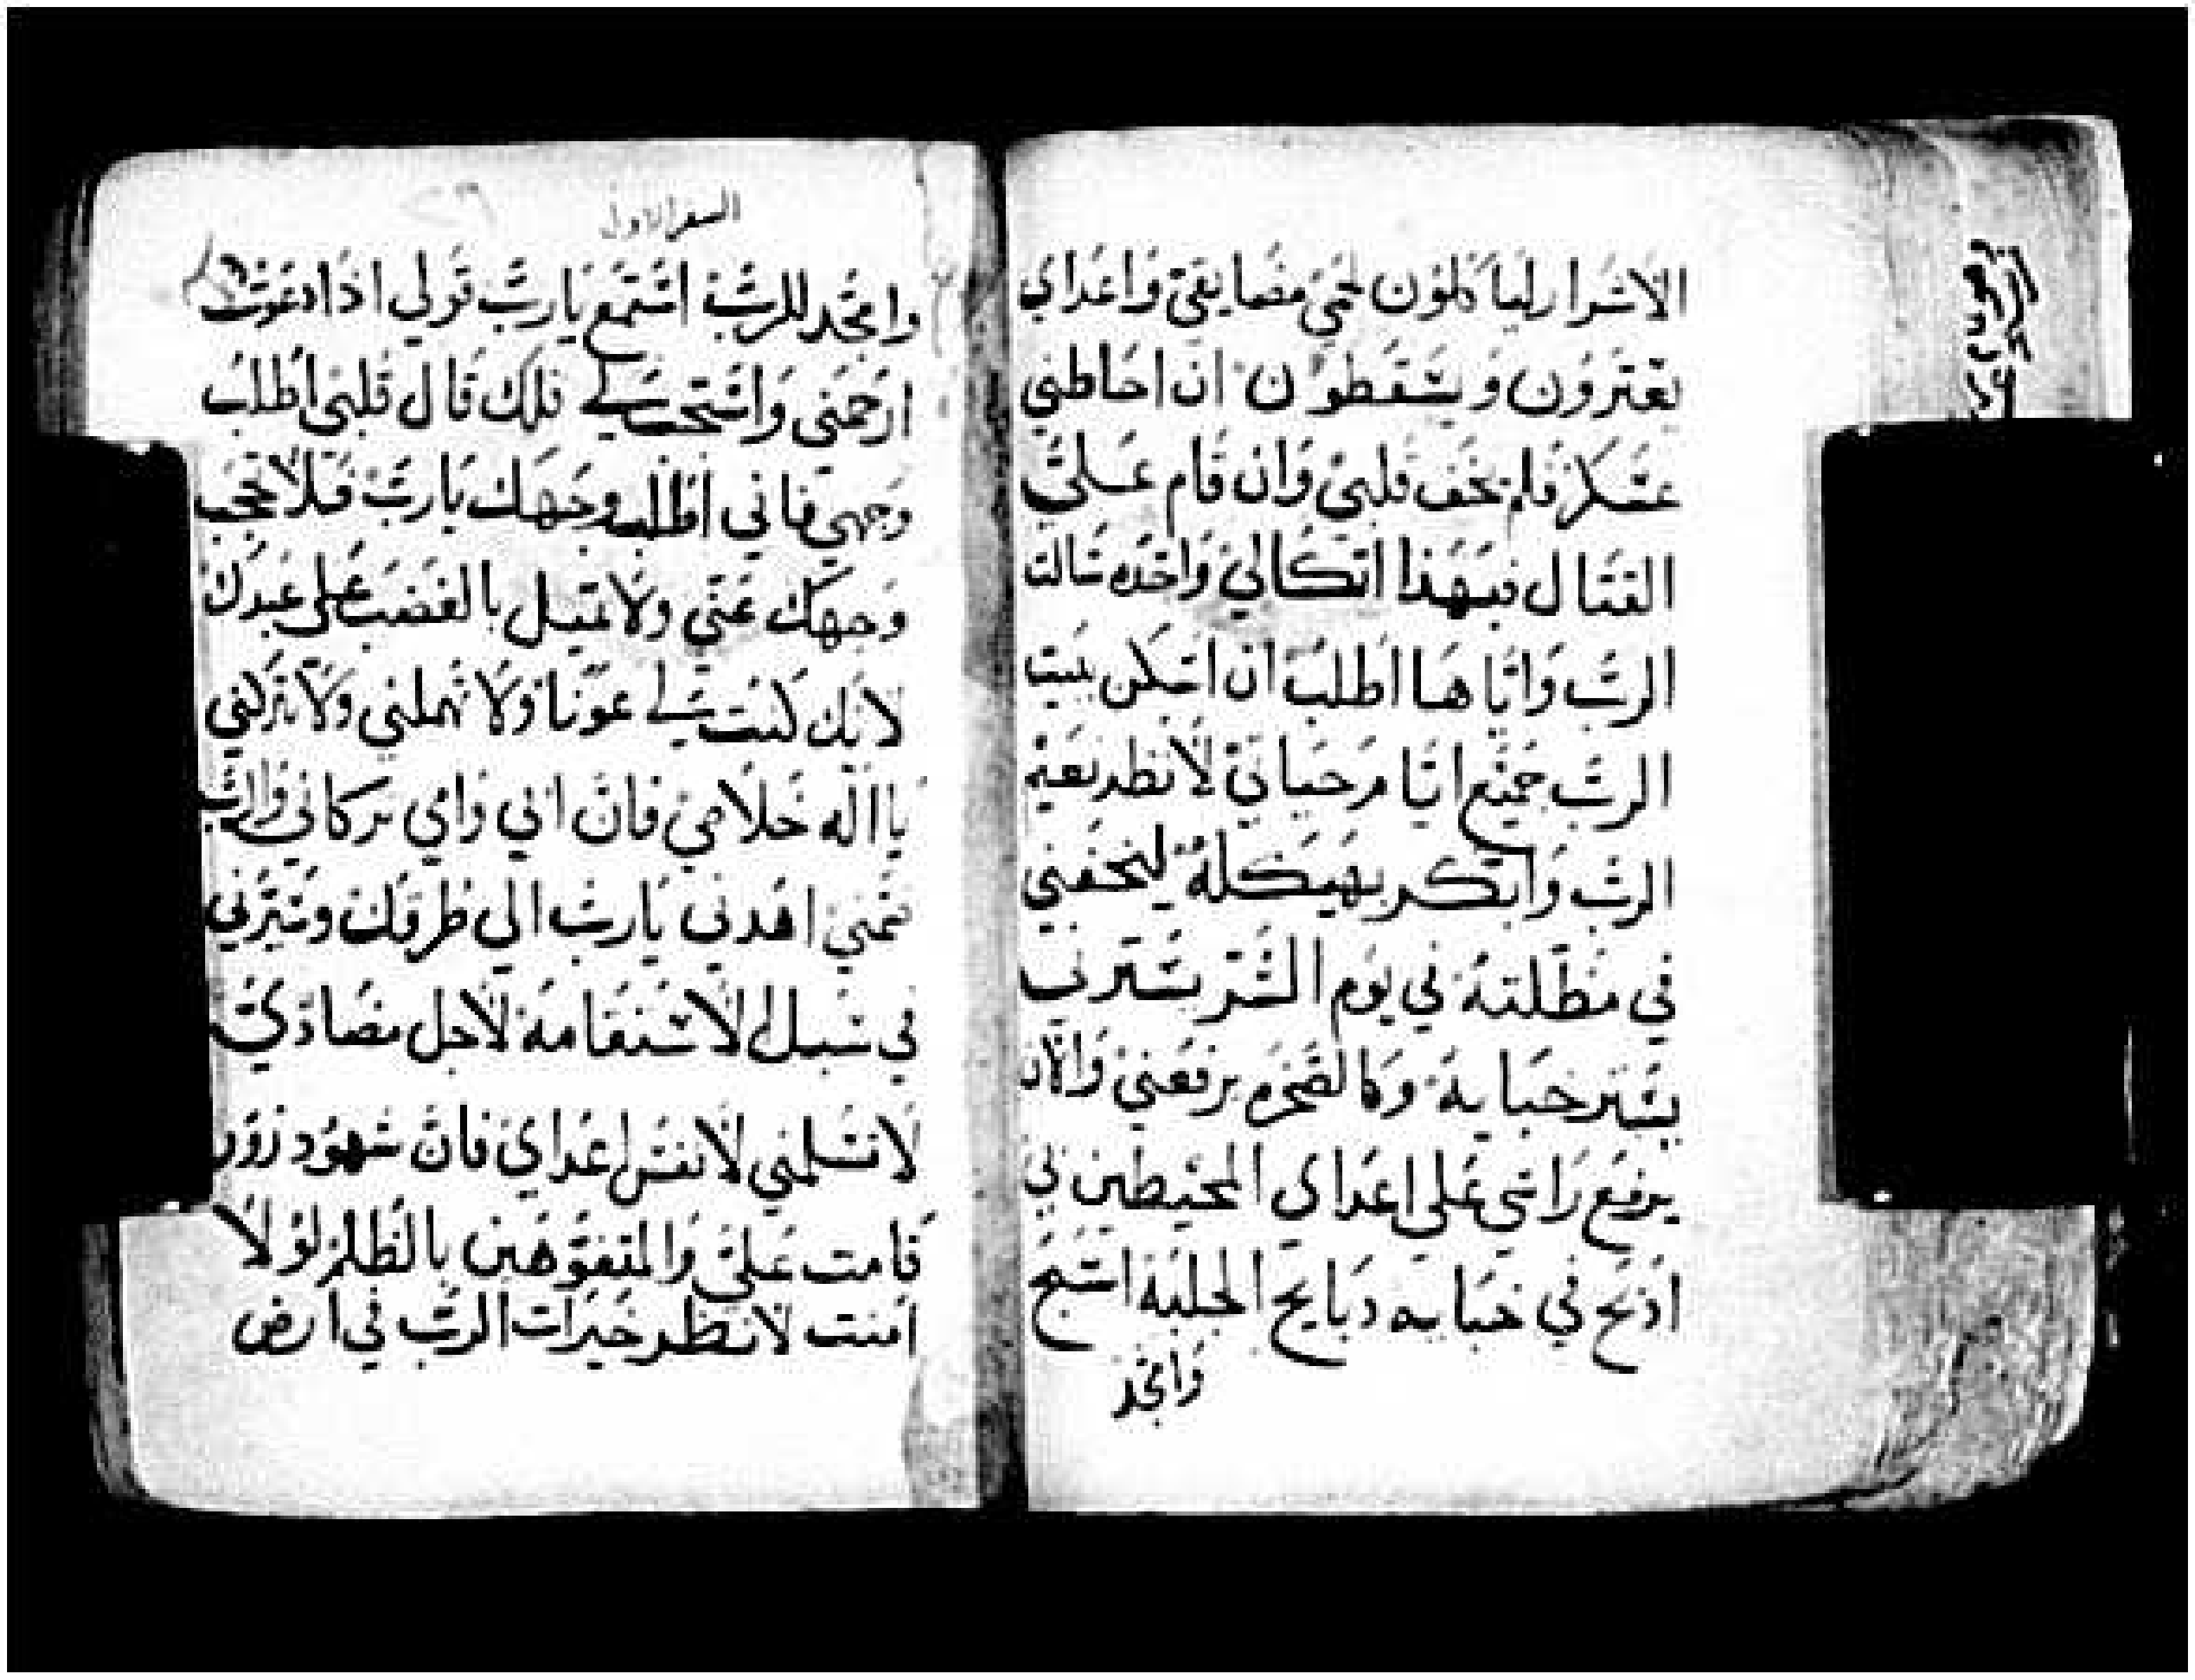 الاشرار لياكلون لحمي مضايقيَّ واعداي
يعترون ويسقطون ان احاطني
عسكر فلم يخف قلبي وان قام عليَّ
القتال فبهذا اتكالي واحده سالت
الربّ واياها اطلب ان اسكن بيت
الربّ جميع ايام حياتي لانظر نعيم
الربّ وابتكر بهيكله ليخفني
في مظلته في يوم الشر يسترني
بستر خبايه وكالصخره يرفعني والان
يرفع راسي علي اعداي المحيطين بي
اذبح في خبايه دبايح الجلبة اسبح
وامجد
السفر الاول
وامجد للربّ استمع يارب قولي اذا دعوت
ارحمني واستجب لي فلك قال قلبي اطلب
وجهي فاني اطلب وجهك يارب فلا تحجب
وجهك عني ولا تميل بالغضب علي عبدك
لانك كنت لي عونا ولا تهملني ولا تتركني
يا اله خلاصي فان ابي وامي تركاني والرب
ضمني اهدني يارب الي طرقك وسيرني
في سبل الاستقامة لاجل مضاديَّ
لا تسلمني لانفس اعداي فان شهود زور
قامت عليَّ والمتفوهين بالظلم لولا
امنت لانظر خيرات الربّ في ارض